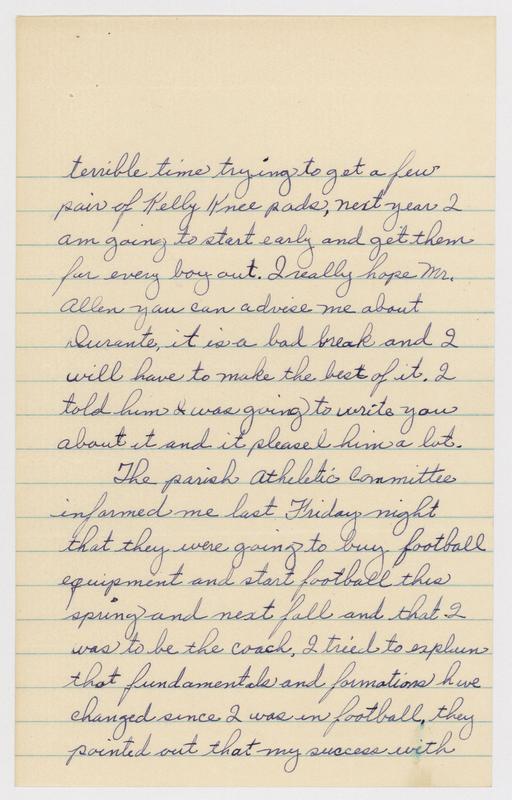 terrible time trying to get a few
pair of Kelly Knee pads, next year I
am going to start early and get them
for every boy out. I really hope Mr.
Allen you can advise me about
Durante, it is a bad break and I
will have to make the best of it. I
told him I was going to write you
about it and it pleased him a lot.
The parish Atheletic Committee
informed me last Friday night
that they were going to buy football
equipment and start football this
spring and next fall and that I
was to be the coach, I tried to explain
that fundamentals and formations have
changed since I was in football, they
pointed out that my success with